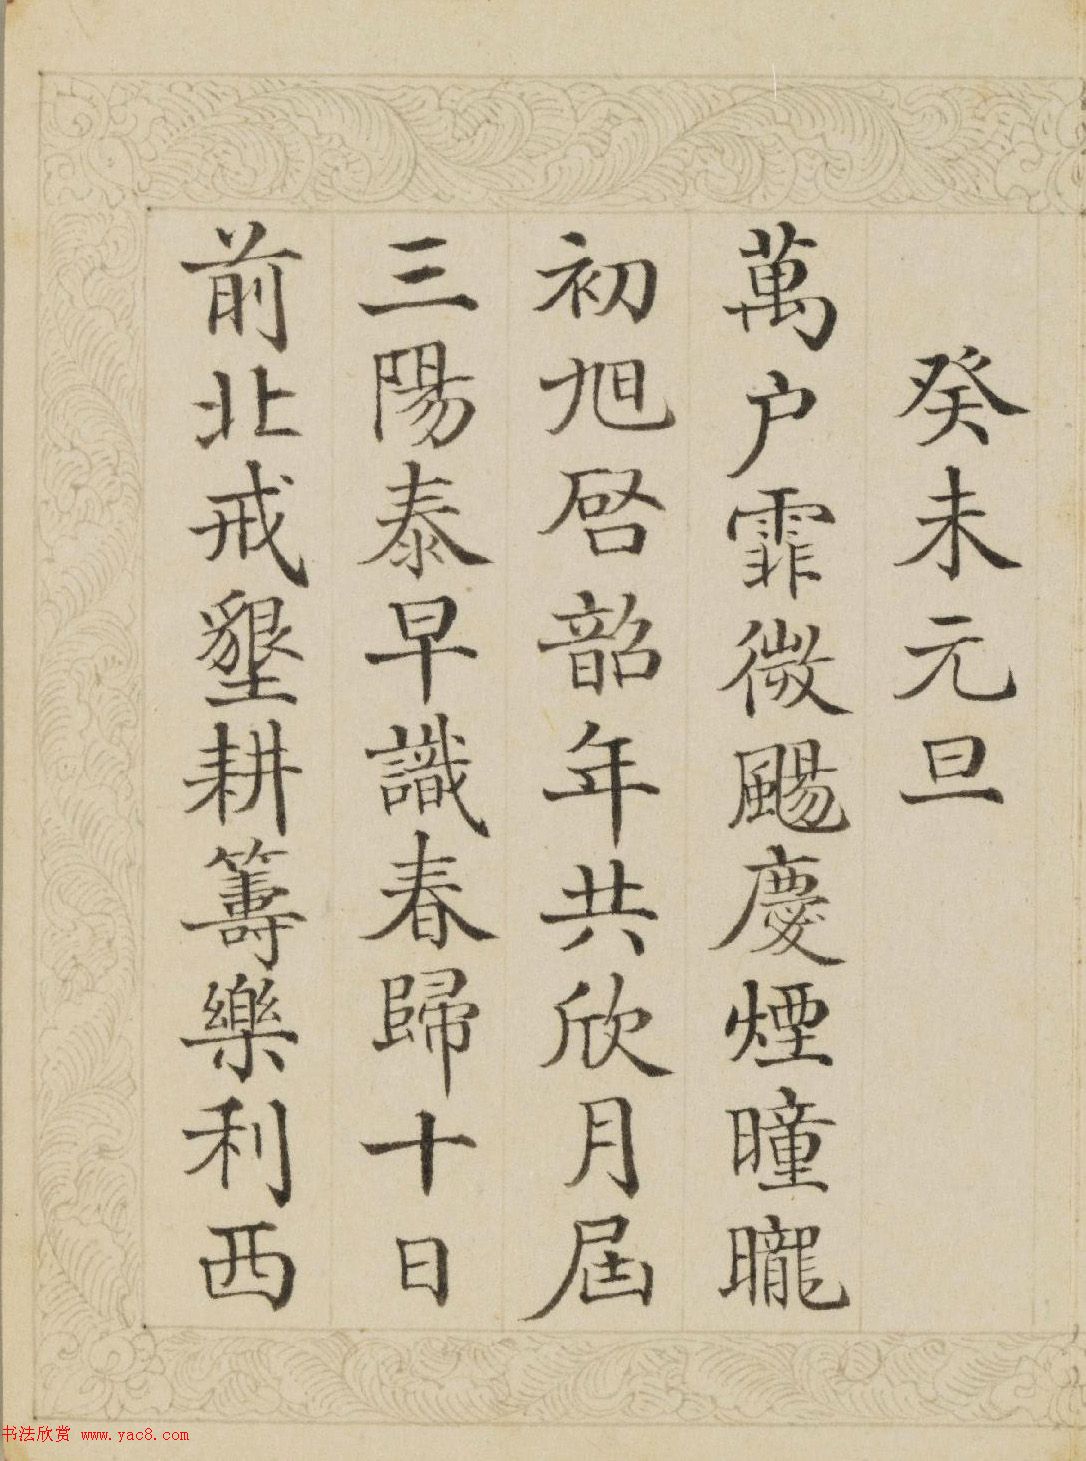 癸未元旦
萬户霏微颺慶煙曈曨
初旭启韶年共欣月屆
三陽泰早識春歸十日
前北戒墾耕籌樂利西
书法欣赏 www.yac8.com